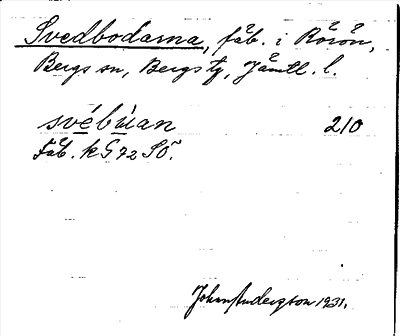 Svedbodarna, fäb. i Rörön,
Bergs sn, Bergs tg, Jämtl. l.
svébùan 210
Fäb. k G 72 SO.
Johan Anderson 1931.